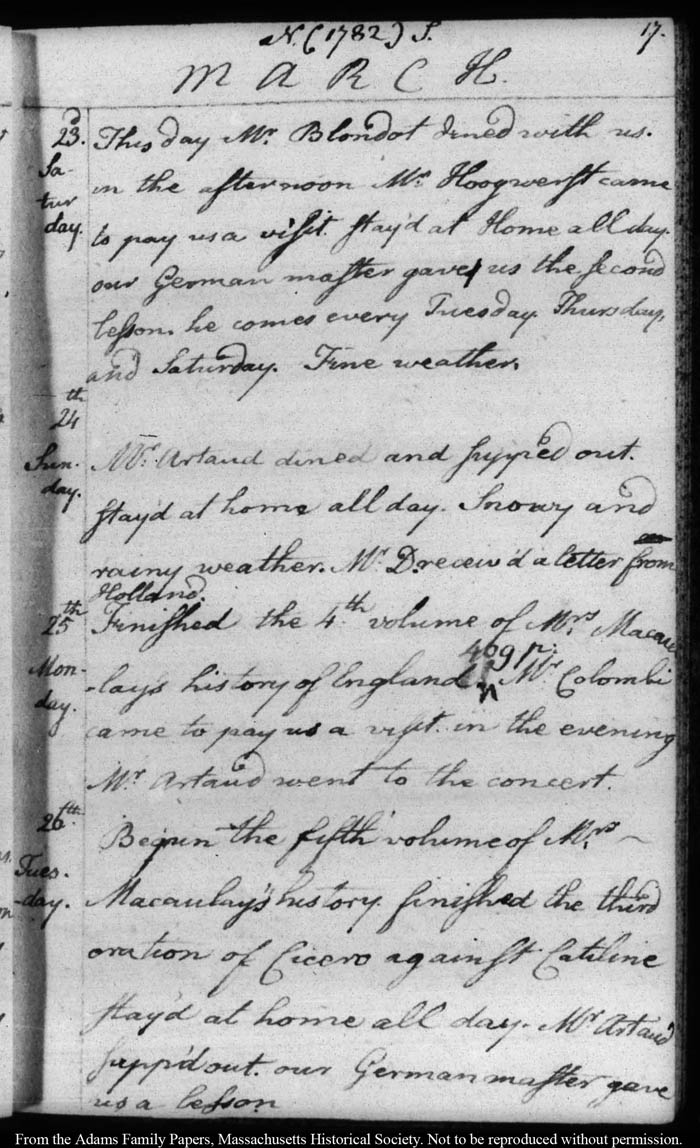 N. (1782) S.
17.
MARCH.
23d.
Sa-
tur
day.
This day Mr. Blondot dined with us.
in the afternoon Mr. Hoogwerft came
to pay us a visit. stay'd at Home all day.
our German master gave us the second
lesson. he comes every Tuesday. Thursday,
and Saturday. Fine weather.
24th
Sun-
day.
Mr. Artaud dined and supped out.
stay'd at home all day. Snowy and
rainy weather. Mr. D. receiv'd a letter from
Holland.
25th
Mon-
day.
Finished the 4th volume of Mrs. Macau
-lay's history of England. Mr. Colombi
409 p:
came to pay us a visit. in the evening
Mr Artaud went to the concert.
26th.
Tues.
-day.
Begun the fifth volume of Mrs. ~
Macaulay's history. finished the third
oration of Cicero against Catiline
stay'd at home all day. Mr. Artaud
supp'd out. our German master gave
us a lesson
From the Adams Family Papers, Massachusetts Historical Society. Not to be reproduced without permission